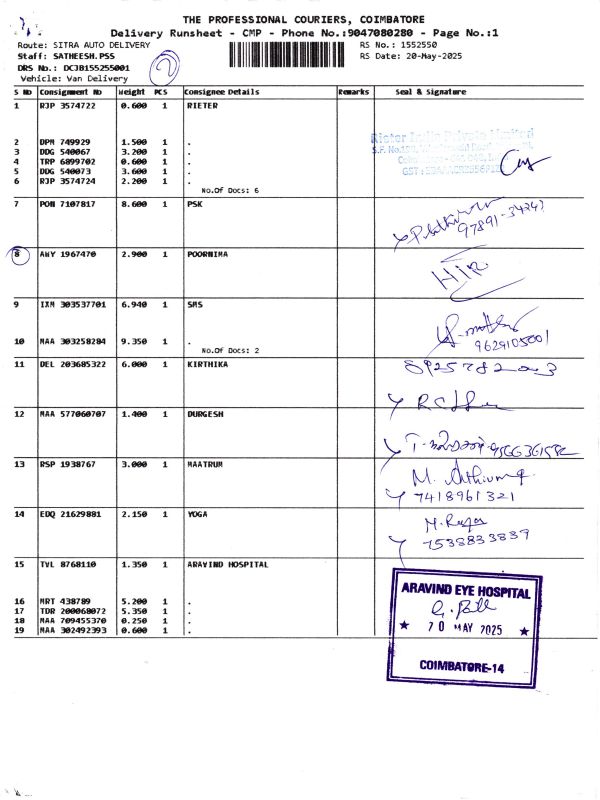 THE PROFESSIONAL COURIERS, COIMBATORE
Delivery Runsheet - CMP - Phone No.:9047080280 - Page No.:1
Route: SITRA AUTO DELIVERY RS No.: 1552550
Staff: SATHEESH.PSS RS Date: 20-May-2025
DRS No.: DCJB155255001
Vehicle: Van Delivery
2
S No Consignment No Weight PCS Consignee Details Remarks Seal & Signature
1 RJP 3574722 0.600 1 RIETER
2 DPM 749929 1.500 1 .
Rieter India Private Limited
3 DDG 540067 3.200 1 .
4 TRP 6899702 0.600 1 .
5 DDG 540073 3.600 1 .
6 RJP 3574724 2.200 1 .
No.Of Docs: 6
7 PON 7107817 8.600 1 PSK
97891-34247
8 AWY 1967470 2.900 1 POORNIMA
9 IXM 303537701 6.940 1 SMS
10 MAA 303258284 9.350 1 .
9629105001
No.Of Docs: 2
11 DEL 203685322 6.000 1 KIRTHIKA
12 MAA 577060707 1.400 1 DURGESH
13 RSP 1938767 3.000 1 MAATRUM
7418961321
14 EDQ 21629881 2.150 1 YOGA
7538833839
15 TVL 8768110 1.350 1 ARAVIND HOSPITAL
16 MRT 438789 5.200 1 .
17 TDR 200068072 5.350 1 .
18 MAA 709455370 0.250 1 .
19 MAA 302492393 0.600 1 .
ARAVIND EYE HOSPITAL
★ 20 MAY 2025 ★
COIMBATORE-14